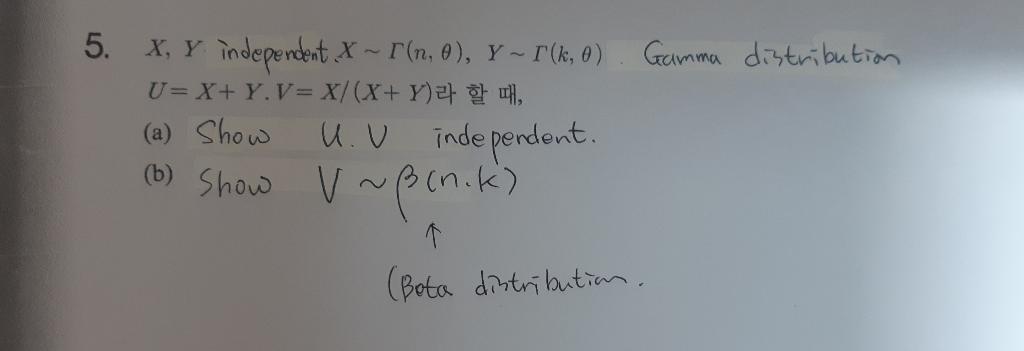 5. X, Y independent. X ~ Γ(n, θ), Y ~ Γ(k, θ). Gamma distribution
U = X + Y. V = X/(X + Y)라 할 때,
(a) Show U. V independent.
(b) Show V ~ β(n.k)
↑
(Beta distribution.